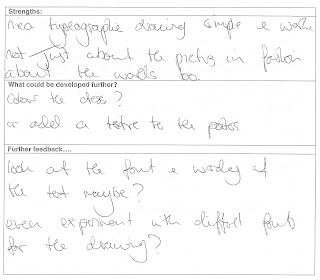 Strengths:
nice typeographe drawing simple & works
not just about the pictres in fashion
about the words too.
What could be developed further?
Colour the dress?
or add a textre to the photos
Further feedback....
look at the font & wording of
the text maybe?
even experiment with diffret fonts
for the drawing?